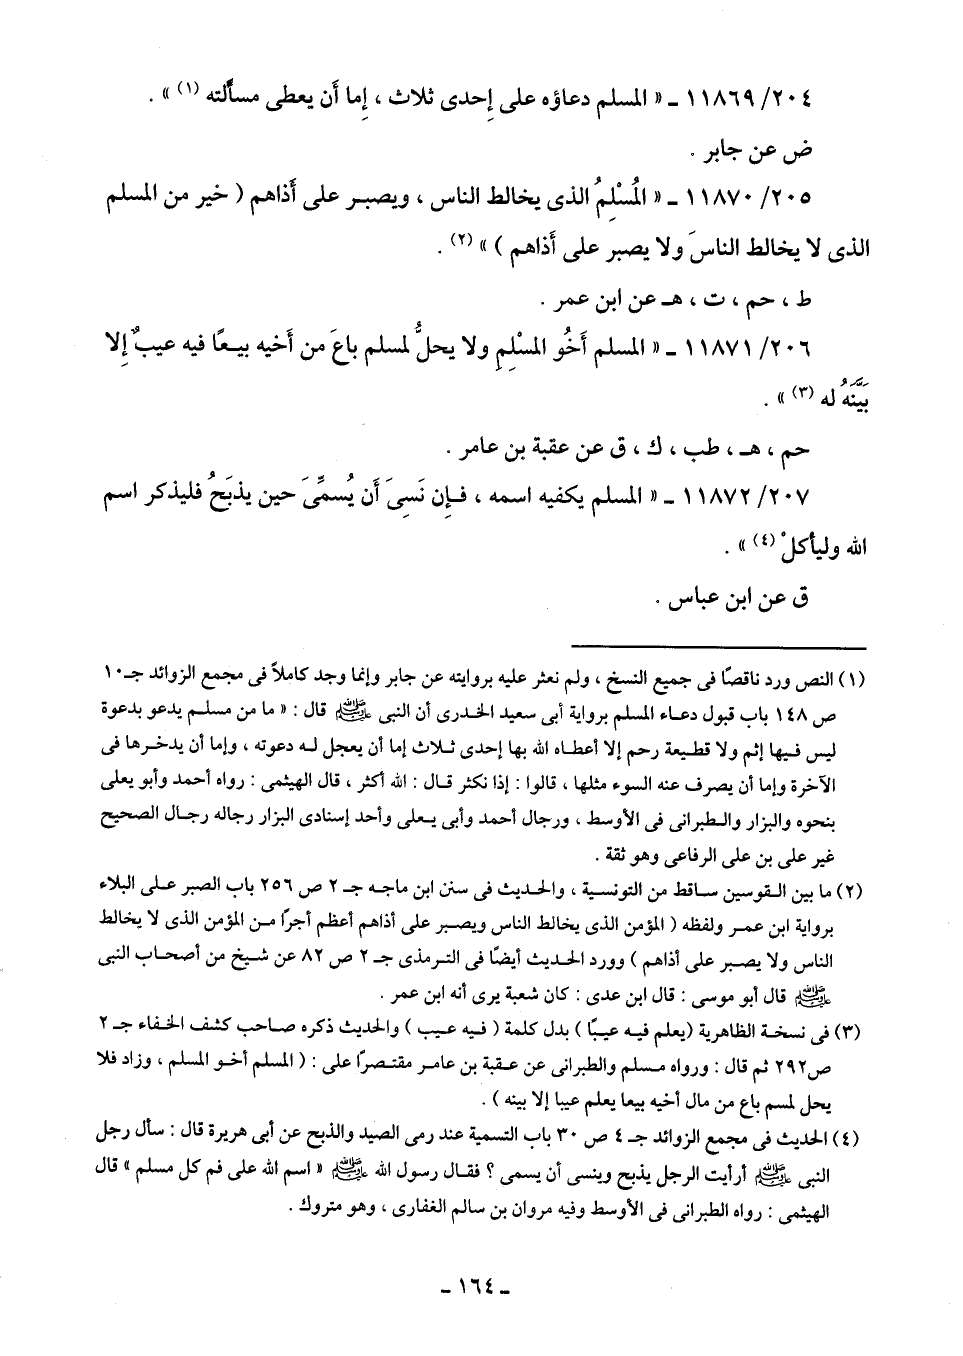 ٢٠٤/ ١١٨٦٩ ـ « المسلم دعاؤه على إحدى ثلاث ، إما أن يعطى مسألته (١) » .
ض عن جابر .
٢٠٥/ ١١٨٧٠ ـ « المُسْلِمُ الذى يخالط الناس ، ويصبـر على أذاهم ( خير من المسلم
الذى لا يخالط الناسَ ولا يصبر على أذاهم ) » (٢) .
ط ، حم ، ت ، هـ عن ابن عمر .
٢٠٦/ ١١٨٧١ ـ « المسلم أخُو المسْلِمِ ولا يحلُّ لمسلم باعَ من أخيه بيـعًا فيه عيبٌ إلا
بَيَّنَهُ له (٣) » .
حم ، هـ ، طب ، ك ، ق عن عقبة بن عامر .
٢٠٧/ ١١٨٧٢ ـ « المسلم يكفيه اسمه ، فـإن نَسِىَ أن يُسمِّىَ حين يذبَحُ فليذكر اسم
الله وليأكلْ (٤) » .
ق عن ابن عباس .
(١) النص ورد ناقصًا فى جميع النسخ ، ولم نعثر عليه بروايته عن جابر وإنما وجد كاملاً فى مجمع الزوائد جـ١٠
ص ١٤٨ باب قبول دعـاء المسلم برواية أبى سعيد الخـدرى أن النبى ﷺ قال : « ما من مسلـم يدعو بدعوة
ليس فـيها إثم ولا قطيعة رحم إلا أعطـاه الله بها إحدى ثـلاث إما أن يعجل لـه دعوته ، وإما أن يدخـرها فى
الآخرة وإما أن يصرف عنه السوء مثلها ، قالوا : إذا نكثر قـال : الله أكثر ، قال الهيثمى : رواه أحمد وأبو يعلى
بنحوه والبزار والـطبرانى فى الأوسط ، ورجال أحمد وأبى يـعلى وأحد إسنادى البزار رجاله رجـال الصحيح
غير على بن على الرفاعى وهو ثقة .
(٢) ما بين القـوسين سـاقط من التونسية ، والحديث فى سنن ابن ماجـه جـ ٢ ص ٢٥٦ باب الصبر عـلى البلاء
برواية ابن عمـر ولفظه ( المؤمن الذى يخالط الناس ويصبـر على أذاهم أعظم أجرًا مـن المؤمن الذى لا يخالط
الناس ولا يصـبر على أذاهم ) وورد الحديث أيضًا فى التـرمذى جـ ٢ ص ٨٢ عن شـيخ من أصحـاب النبى
ﷺ قال أبو موسى : قال ابن عدى : كان شعبة يرى أنه ابن عمر .
(٣) فى نسخة الظاهرية (يعلم فيه عيبًا ) بدل كلمة ( فيه عيب ) والحديث ذكره صاحب كشف الخفاء جـ ٢
ص٢٩٢ ثم قال : ورواه مـسلم والطبرانى عن عـقبة بن عامـر مقتـصرًا على : ( المسلم أخـو المسلم ، وزاد فلا
يحل لمسم باع من مال أخيه بيعا يعلم عيبا إلا بينه ) .
(٤) الحديث فى مجمع الزوائد جـ ٤ ص ٣٠ باب التسمية عند رمى الصيد والذبح عن أبى هريرة قال : سأل رجل
النبى ﷺ أرأيت الرجل يذبح وينسى أن يسمى ؟ فقـال رسول الله ﷺ « اسم الله على فم كل مسلم » قال
الهيثمى : رواه الطبرانى فى الأوسط وفيه مروان بن سالم الغفارى ، وهو متروك .
ـ ١٦٤ ـ